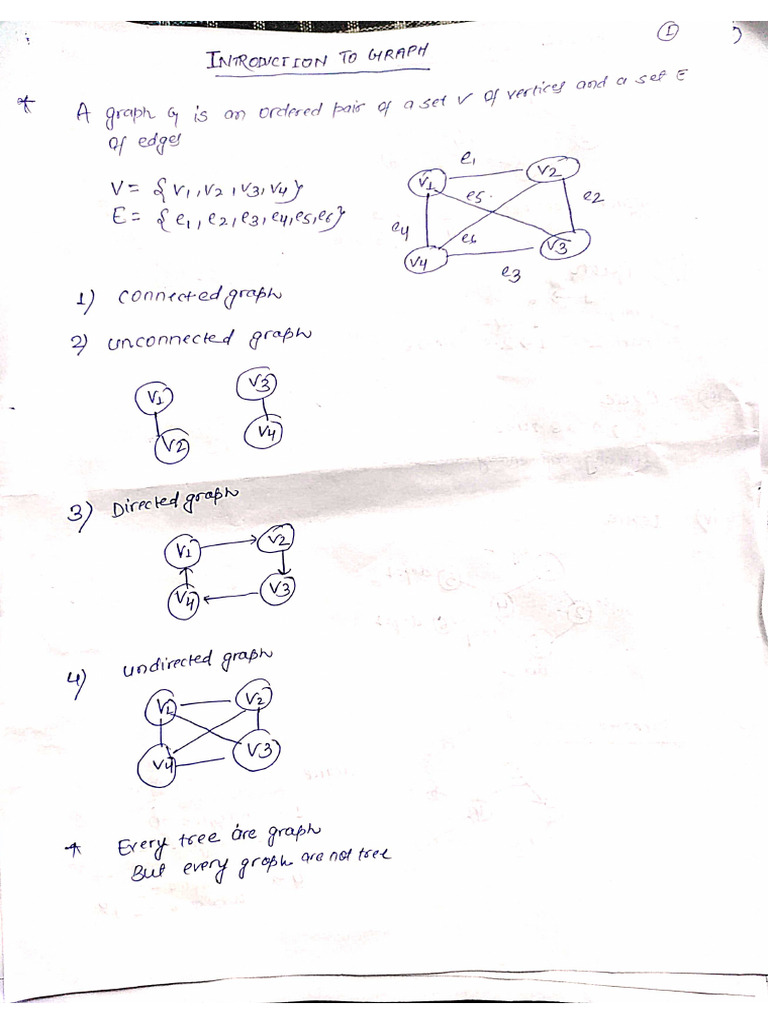 ①
INTRODUCTION TO GRAPH
* A graph G is an ordered pair of a set V of vertices and a set E
of edges
V = {V1, V2, V3, V4}
E = {e1, e2, e3, e4, e5, e6}
e1
V1 V2
e5 e2
e4 e6
V4 V3
e3
1) connected graph
2) unconnected graph
V1 V3
V2 V4
3) Directed graph
V1 V2
V4 V3
4) undirected graph
V1 V2
V4 V3
* Every tree are graph
But every graph are not tree